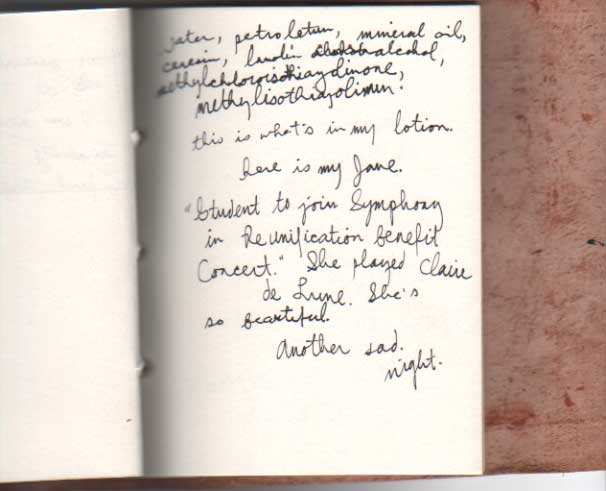 water, petroletum, mineral oil,
ceresin, lanolin alcohol,
methylchloroisothiazdinone,
methylisothiazolimin.
this is what's in my lotion.
here is my Jane.
"Student to join Symphony
in Reunification Benefit
Concert." She played Claire
de Lune. She's
so beautiful.
Another sad.
night.